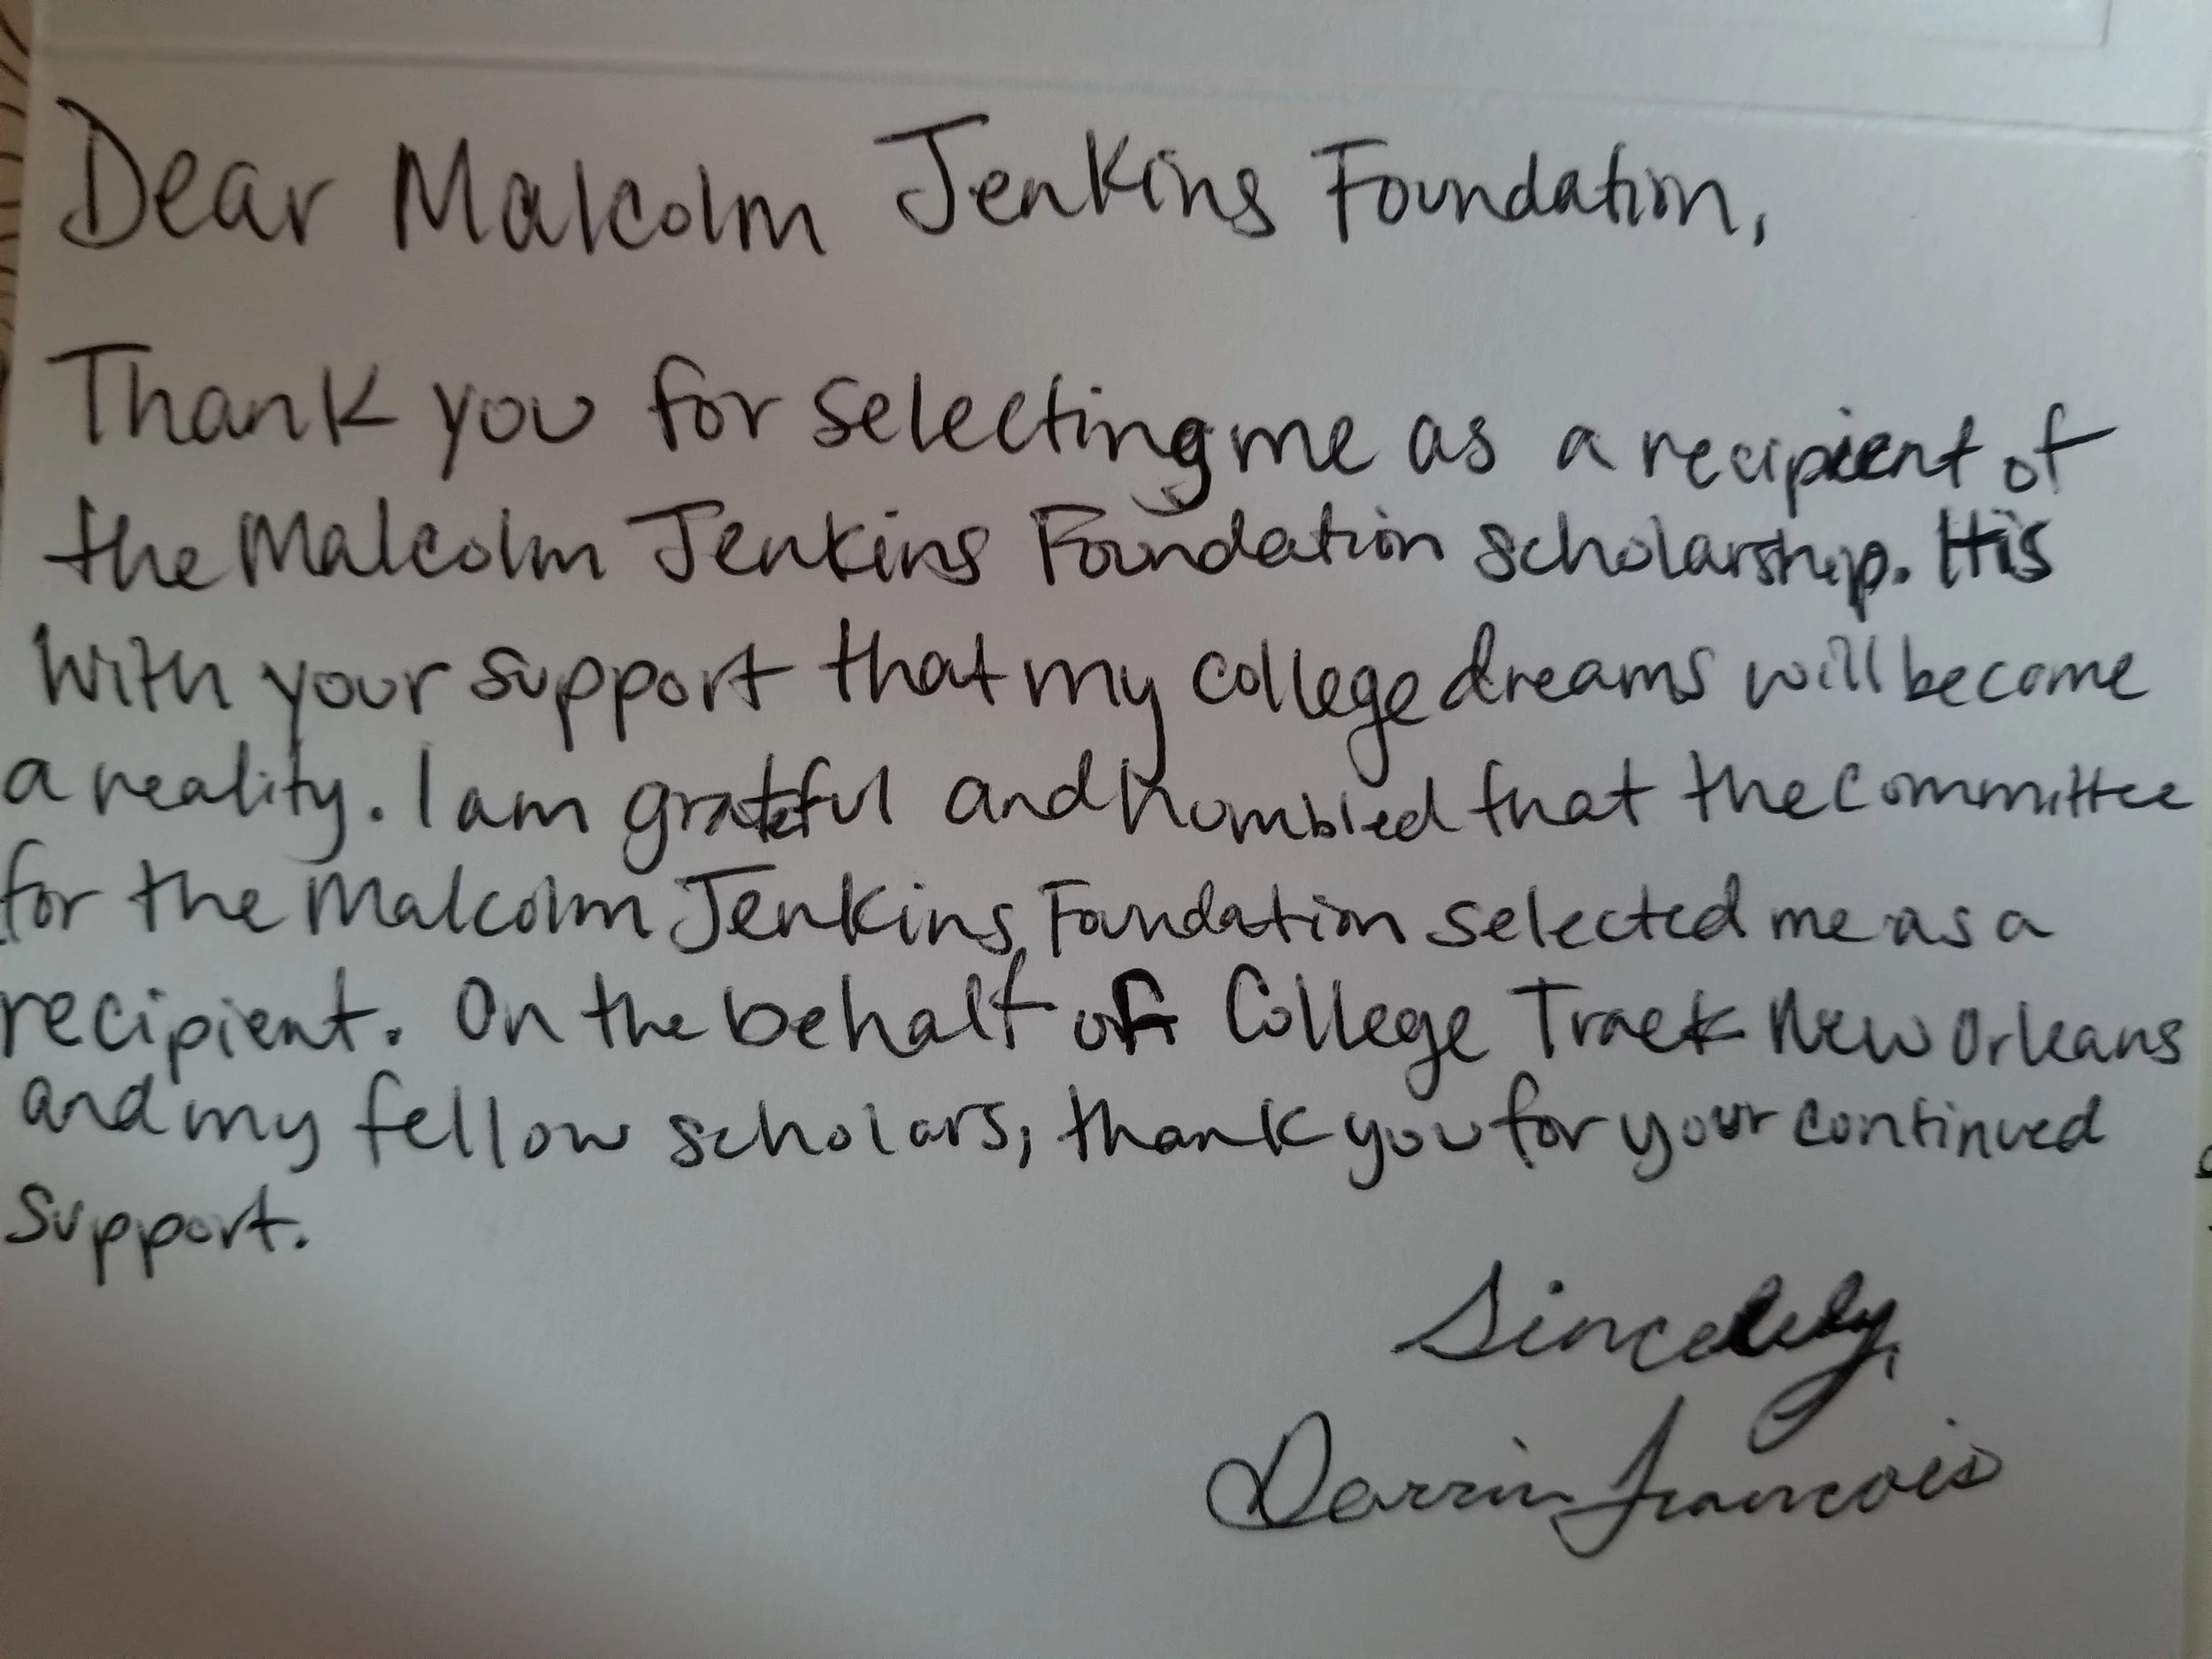 Dear Malcolm Jenkins Foundation,
Thank you for selecting me as a recipient of
the Malcolm Jenkins Foundation scholarship. It is
with your support that my college dreams will become
a reality. I am grateful and humbled that the committee
for the Malcolm Jenkins Foundation selected me as a
recipient. On the behalf of College Track New Orleans
and my fellow scholars, thank you for your continued
support.
Sincerely,
Darrin Francois